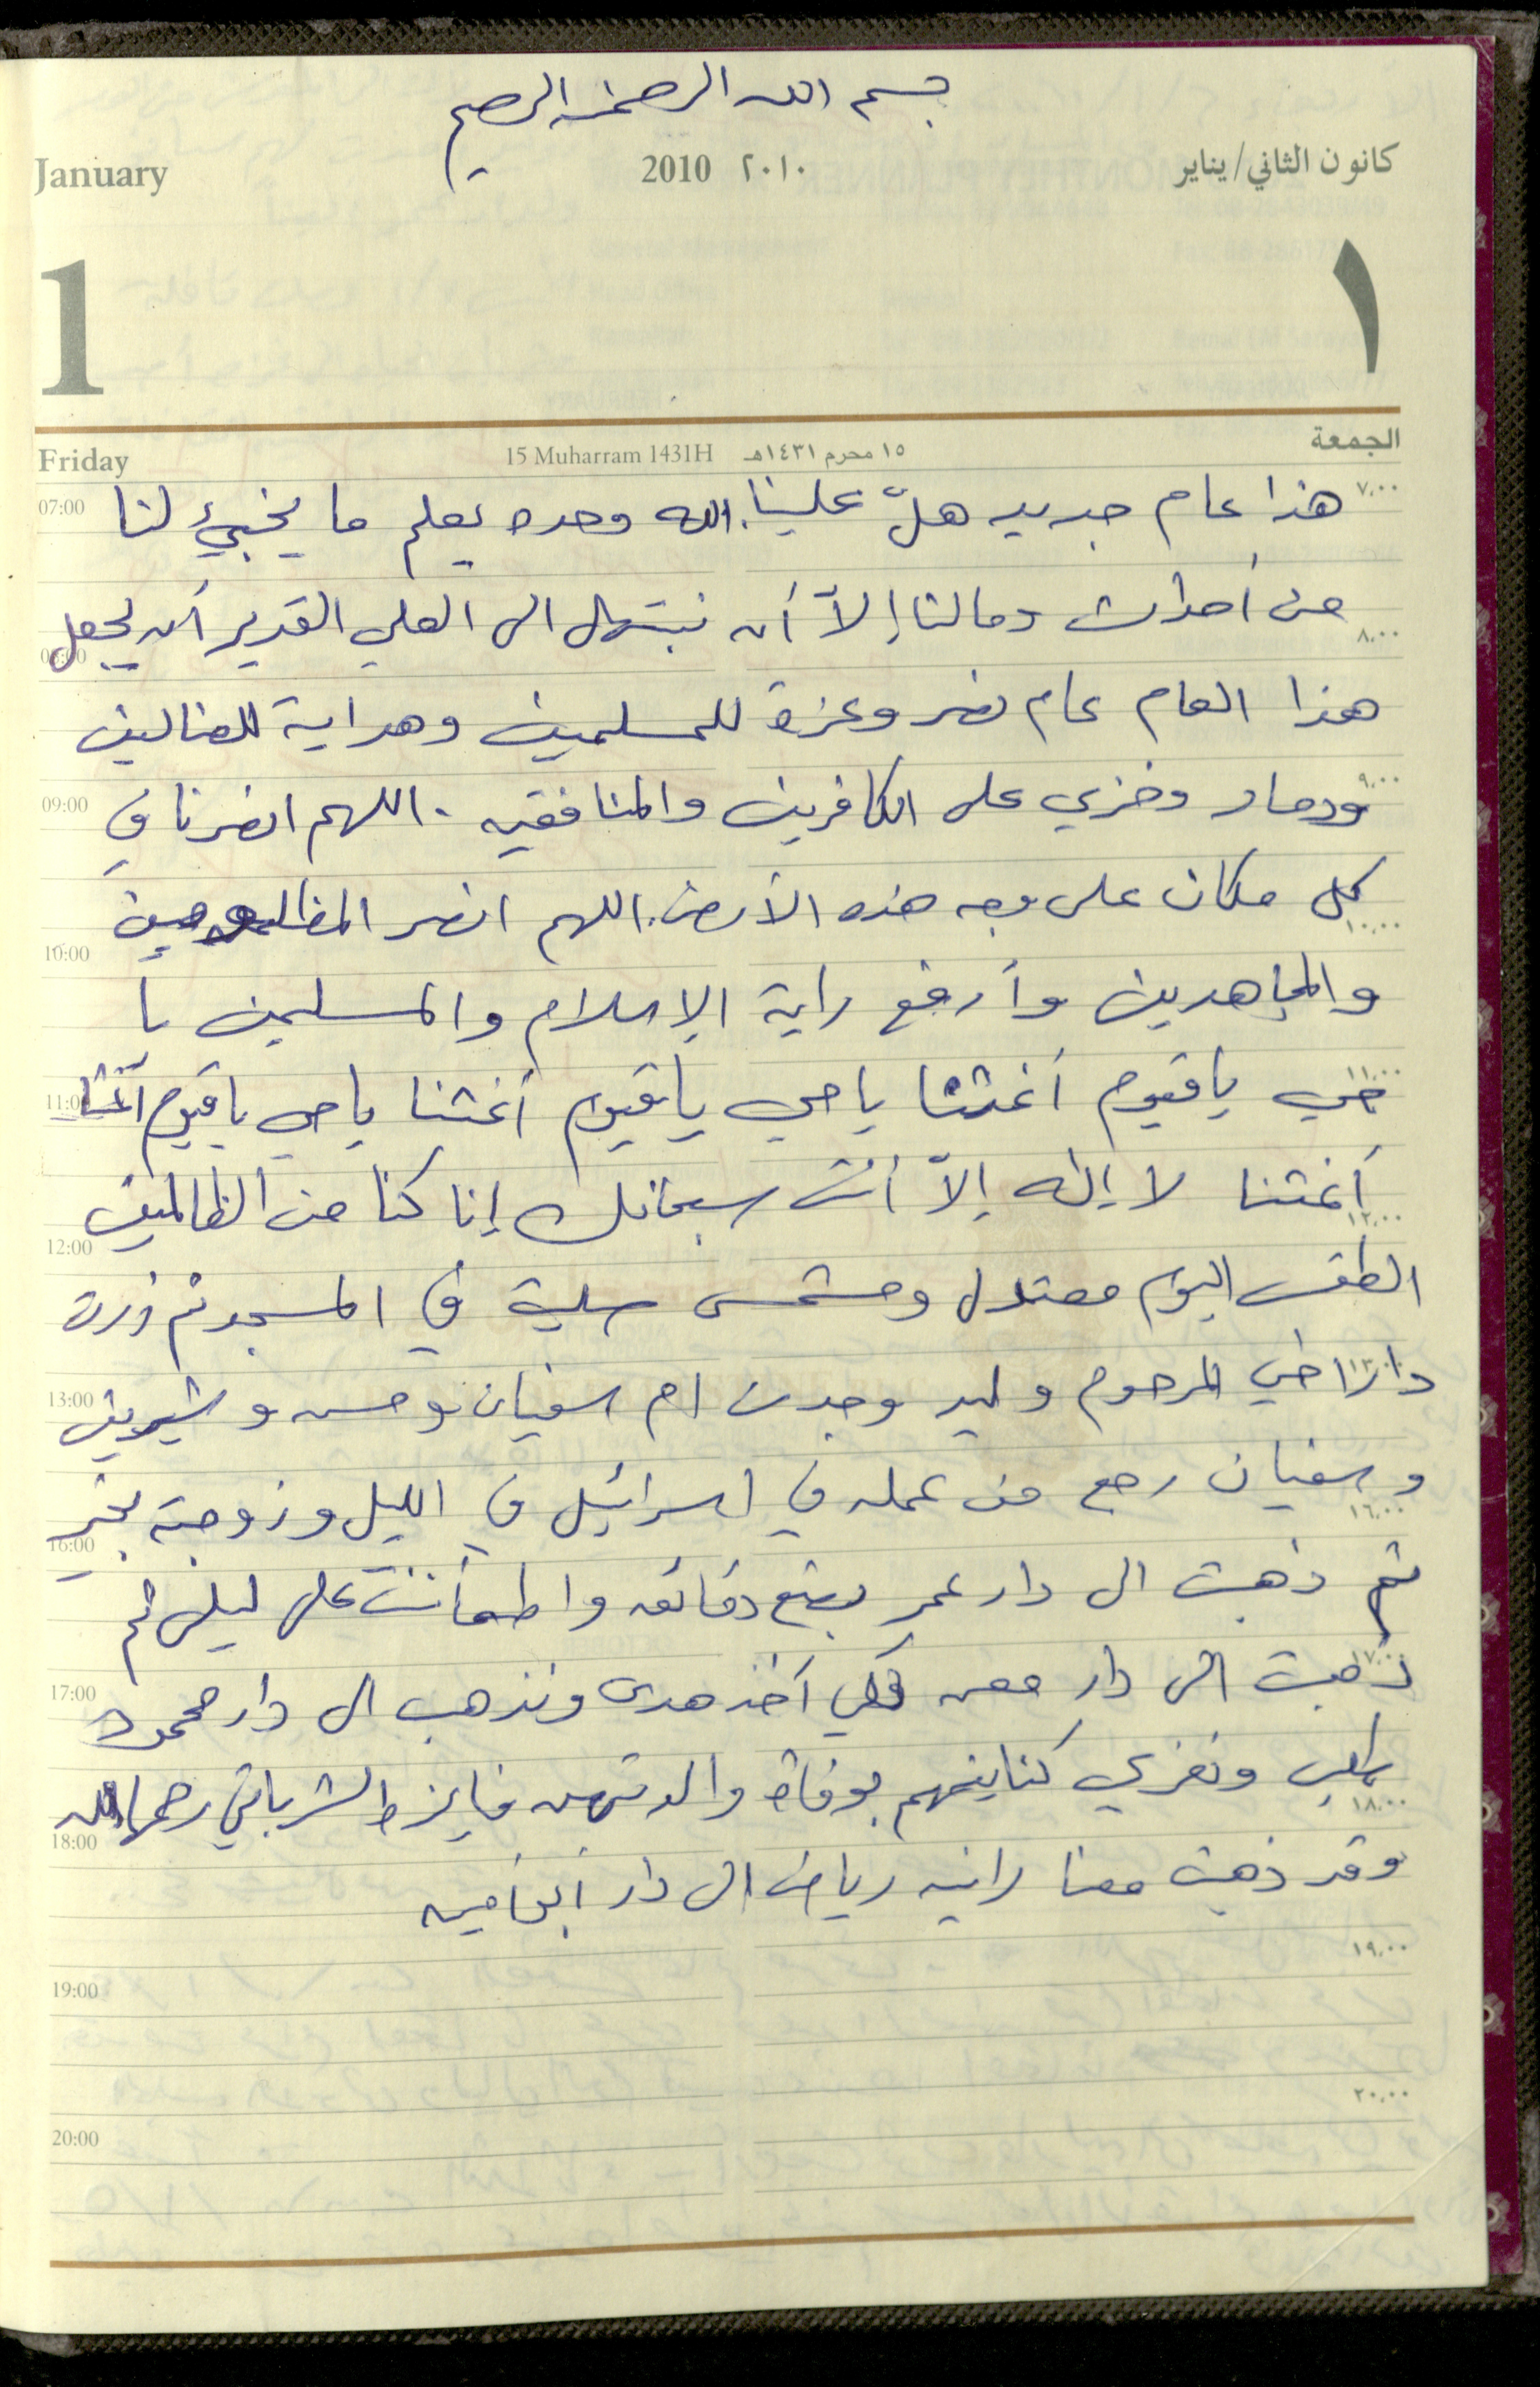 بسم الله الرحمن الرحيم
January 2010 ٢٠١٠ كانون الثاني/يناير
1 ١
Friday 15 Muharram 1431H ١٥ محرم ١٤٣١هـ الجمعة
07:00 هذا عام جديد هلّ علينا. الله وحده يعلم ما يخبئ لنا ٧،٠٠
من أحداث ومالنا إلاّ أن نبتهل الى العلي القدير أن يجعل ٨،٠٠
08:00
هذا العام عام نصر وعزة للمسلمين وهداية للضالين
09:00 ودمار وخزي على الكافرين والمنافقين . اللهم انصرنا في ٩،٠٠
كل مكان على وجه هذه الأرض. اللهم انصر المظلومين ١٠،٠٠
10:00
والمجاهدين وأرفع راية الإسلام والمسلمين يا
11:00 حي ياقيوم أغثنا ياحي ياقيوم أغثنا ياحي ياقيوم أغثنا ١١،٠٠
أغثنا لا إله إلاّ أنت سبحانك إنا كنا من الظالمين ١٢،٠٠
12:00
الطقس اليوم معتدل ومشمس صليت في المسجد ثم زرت
13:00 دار اخي المرحوم وليد وجدت ام سفيان وحسن وشيرين ١٣،٠٠
وسفيان رجع من عمله في اسرائيل في الليل وزوجته بخير ١٦،٠٠
16:00
ثم ذهبت الى دار عمر بضع دقائق واطمأننت على ليلى ثم
17:00 ذهبت الى دار معن لكي آخذ هدى ونذهب الى دار محمود ١٧،٠٠
ونعزي كناينهم بوفاة والدتهن فايزة الشرباتي رحمها الله ١٨،٠٠
18:00
وقد ذهبت معنا رانيه رياض الى دار
١٩،٠٠
19:00
٢٠،٠٠
20:00